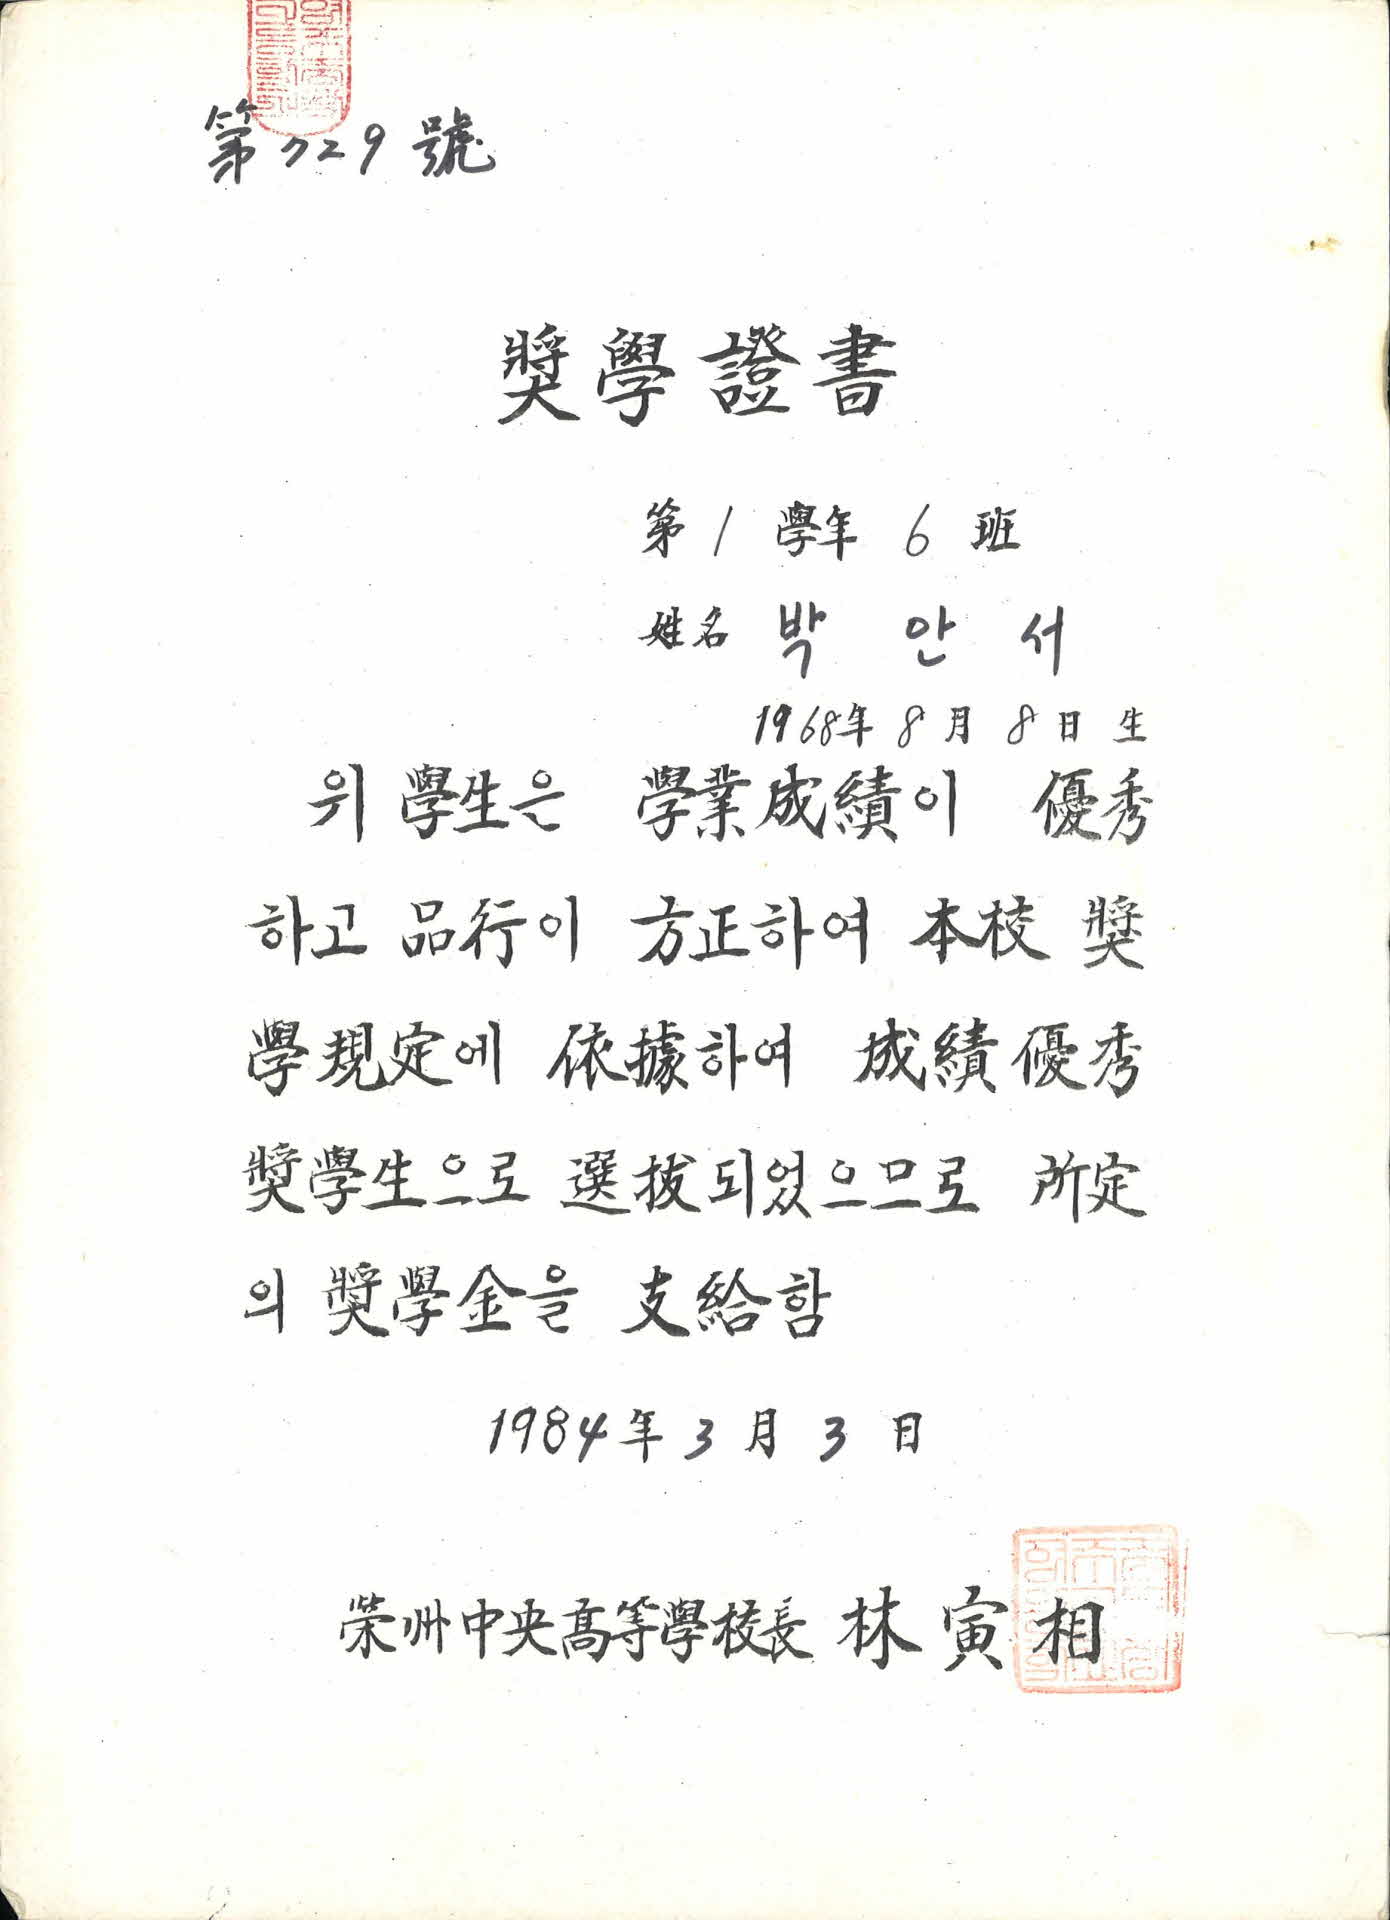 第729號
獎學證書
第1學年 6班
姓名 박안서
1968年 8月 8日生
위 學生은 學業成績이 優秀
하고 品行이 方正하여 本校 獎
學規定에 依據하여 成績優秀
獎學生으로 選拔되었으므로 所定
의 獎學金을 支給함
1984年 3月 3日
榮州中央高等學校長 林寅相